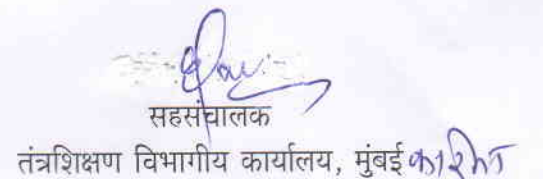 सहसंचालक
तंत्रशिक्षण विभागीय कार्यालय, मुंबई